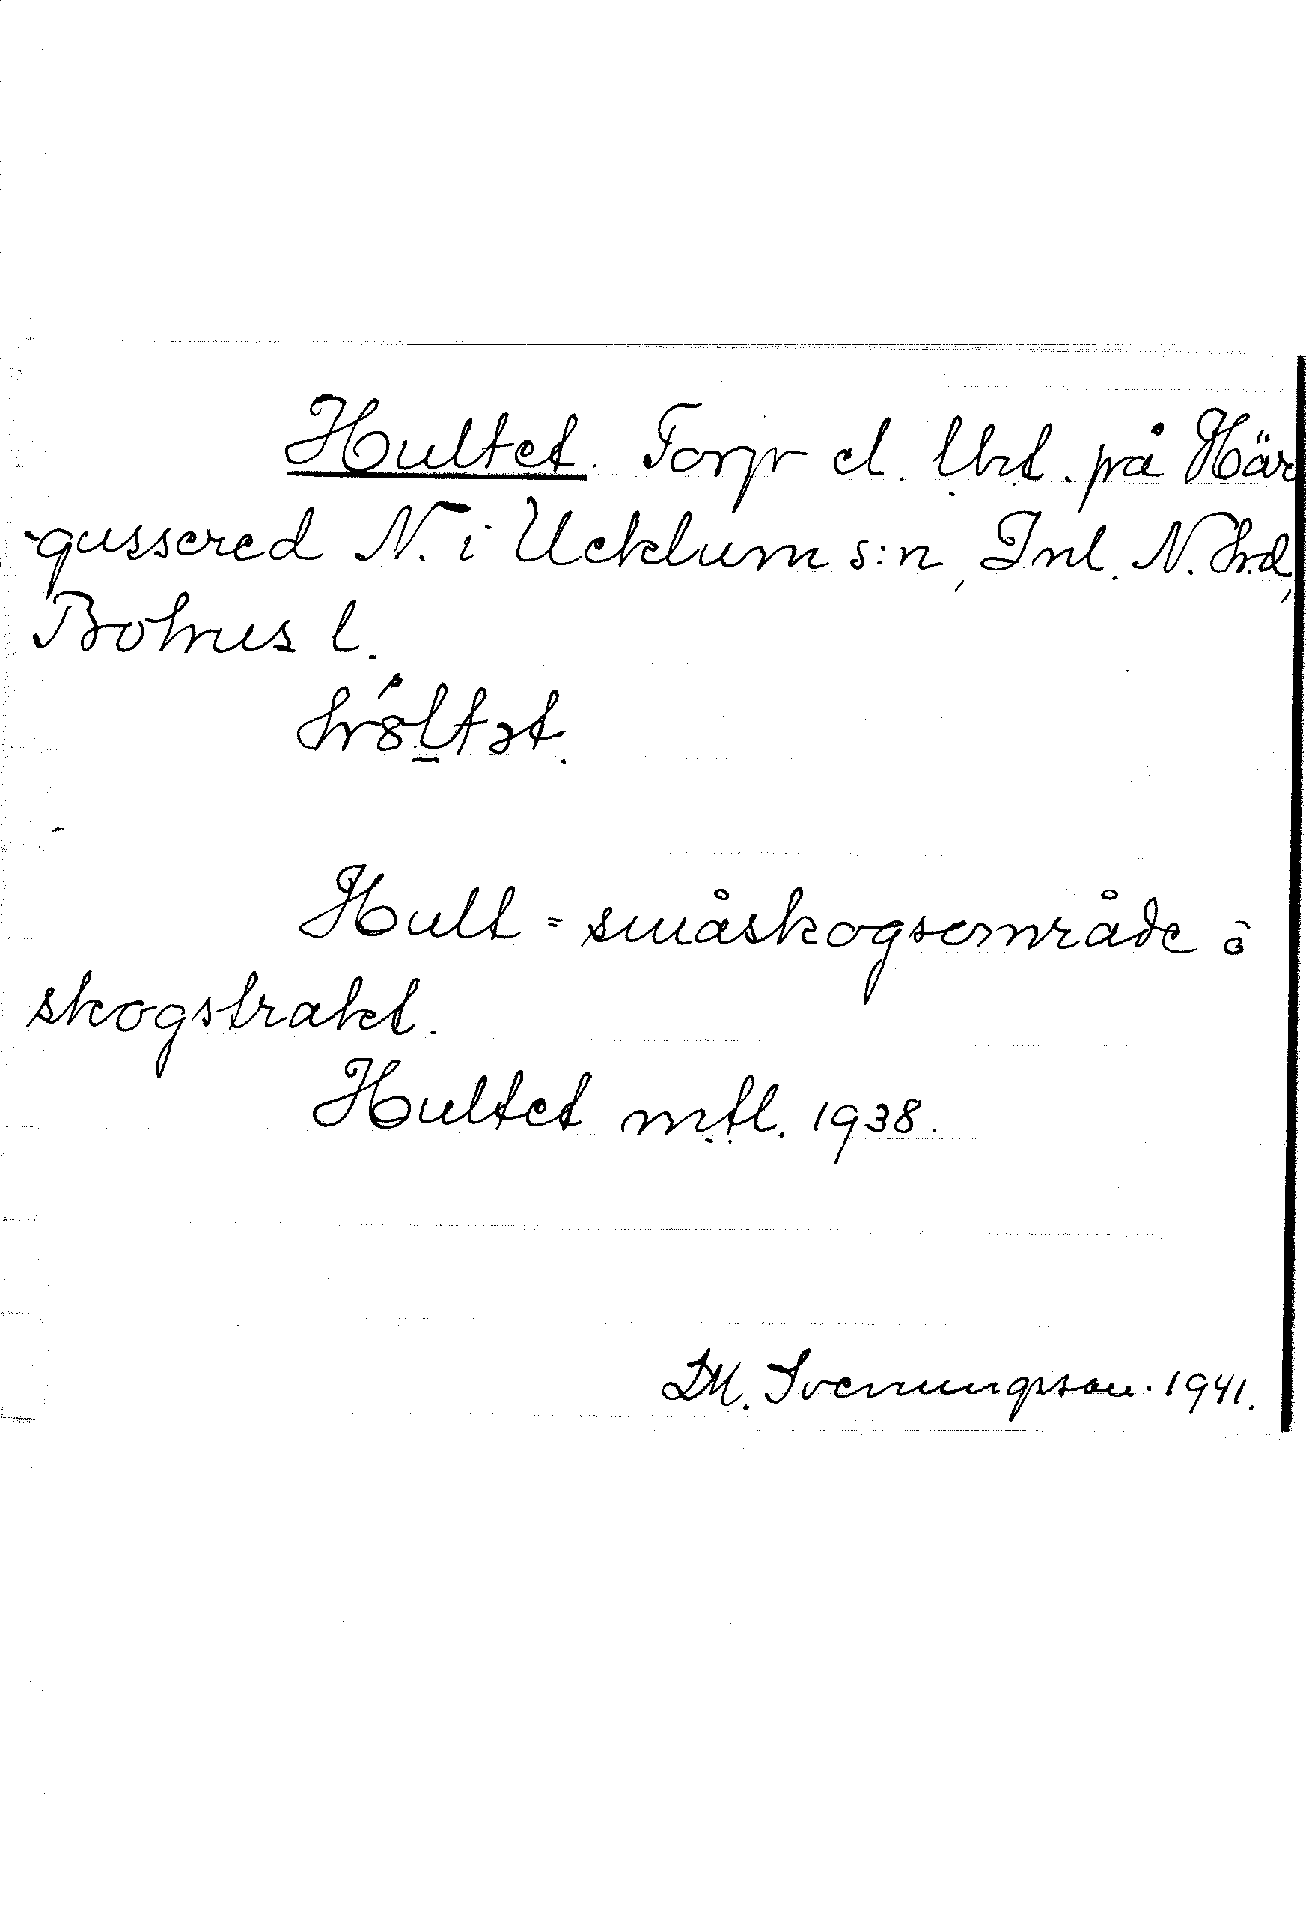 Hultet. Torp el. lht. på Här
-gussered N. i Ucklum s:n, Inl. N. hd,
Bohus l.
Hult = småskogsområde o
skogstrakt.
Hultet mtl. 1938.
DM. Svenungsson. 1941.